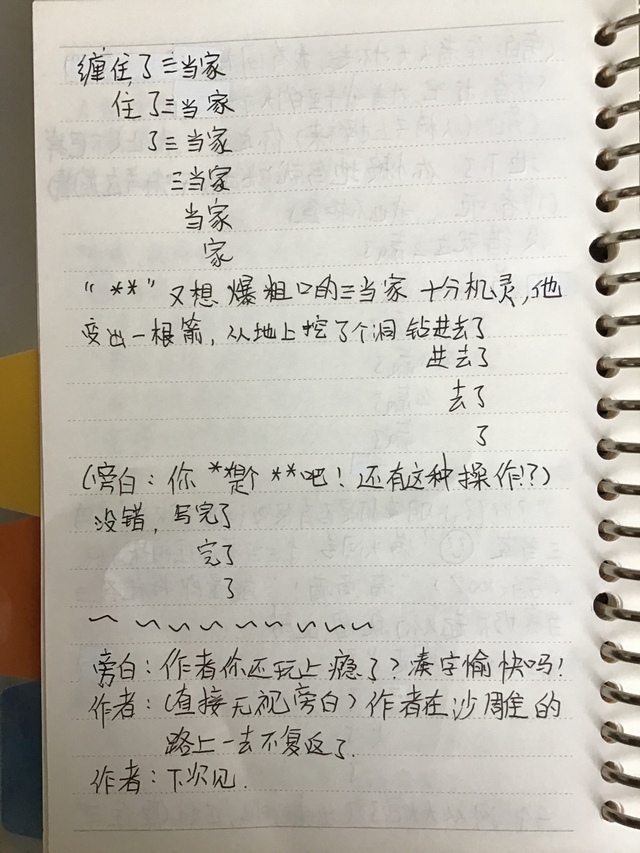 缠住了三当家
住了三当家
了三当家
三当家
当家
家
“**”又想爆粗口的三当家十分机灵,他
变出一根箭,从地上挖了个洞钻进去了
进去了
去了
了
(旁白:你**是个**吧!还有这种操作!?)
没错,写完了
完了
了
~ ~ ~ ~ ~ ~ ~ ~ ~
旁白:作者你还玩上瘾了?凑字愉快吗!
作者:(直接无视旁白)作者在沙雕的
路上一去不复返了.
作者:下次见.